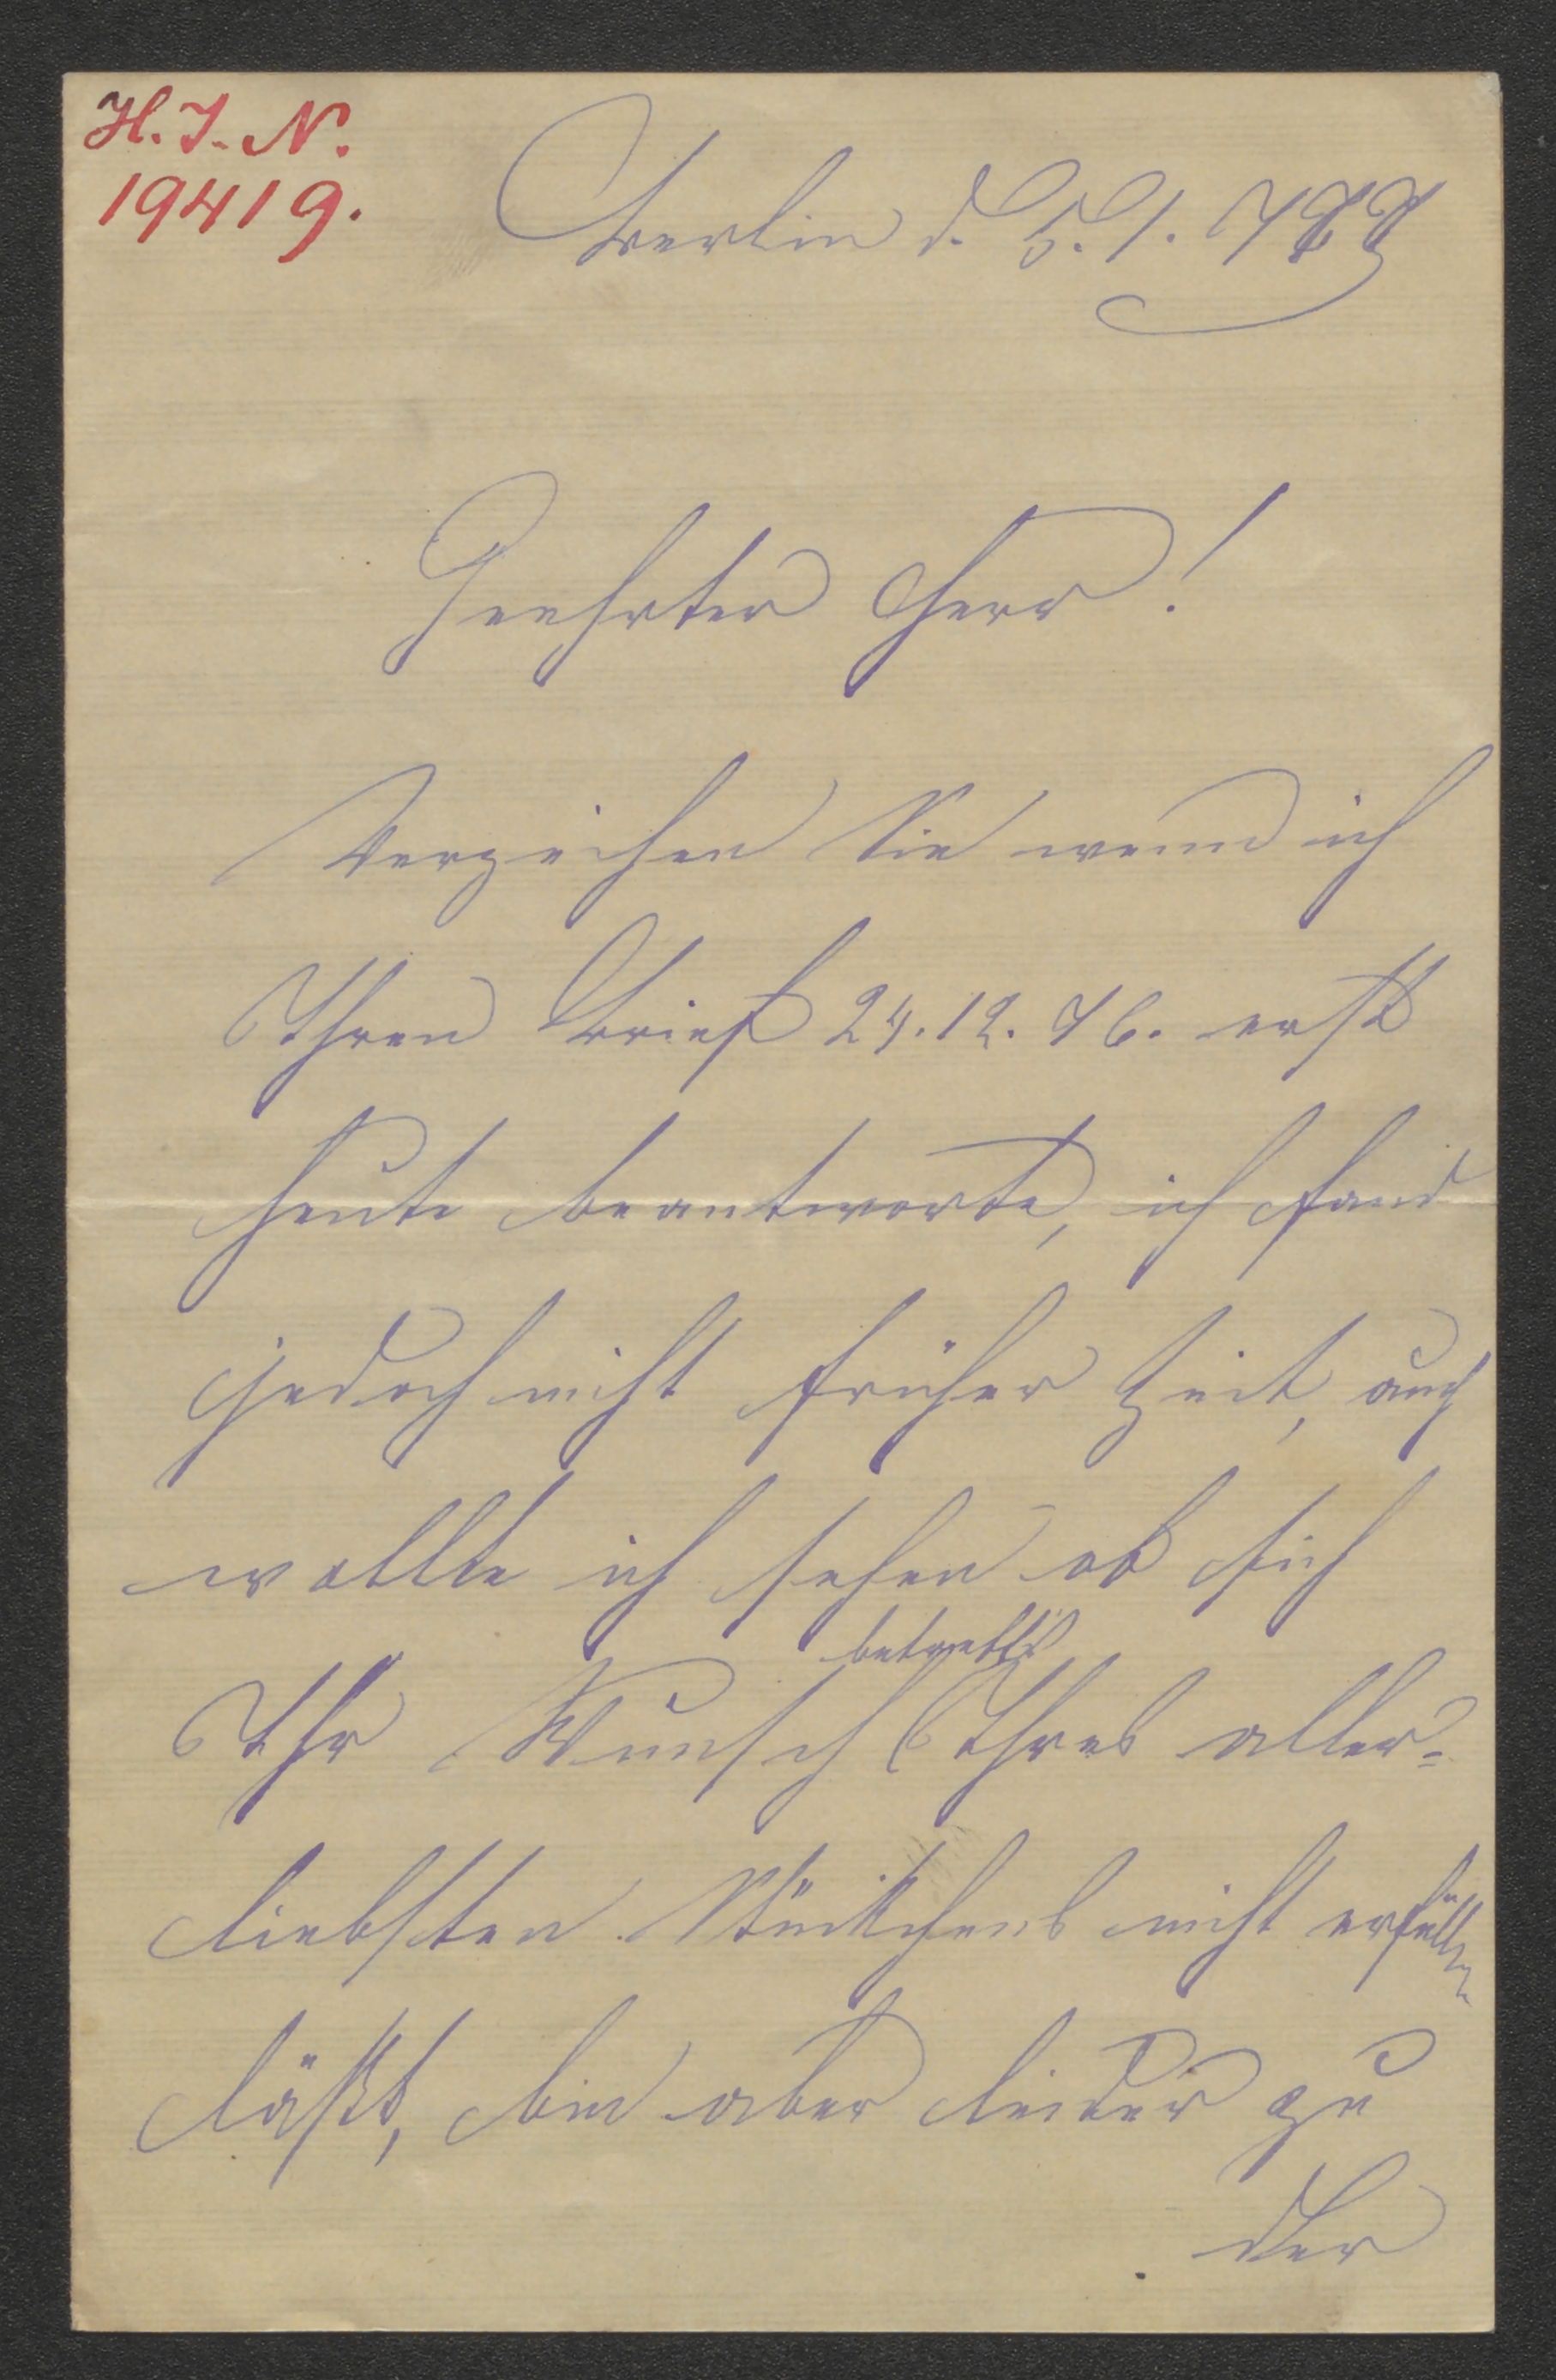 H. I. N.
19419.
Berlin d. 5. 1. 77
Geehrter Herr!
Verzeihen Sie wenn ich
Ihren Brief 24. 12. 76. erst
heute beantworte, ich fand
jedoch nicht früher Zeit, auch
wollte ich sehen ob sich
betreffs
Ihr Wunsch Ihres aller=
liebsten Stückchens nicht erfüllen
läßt, bin aber leider zu
der